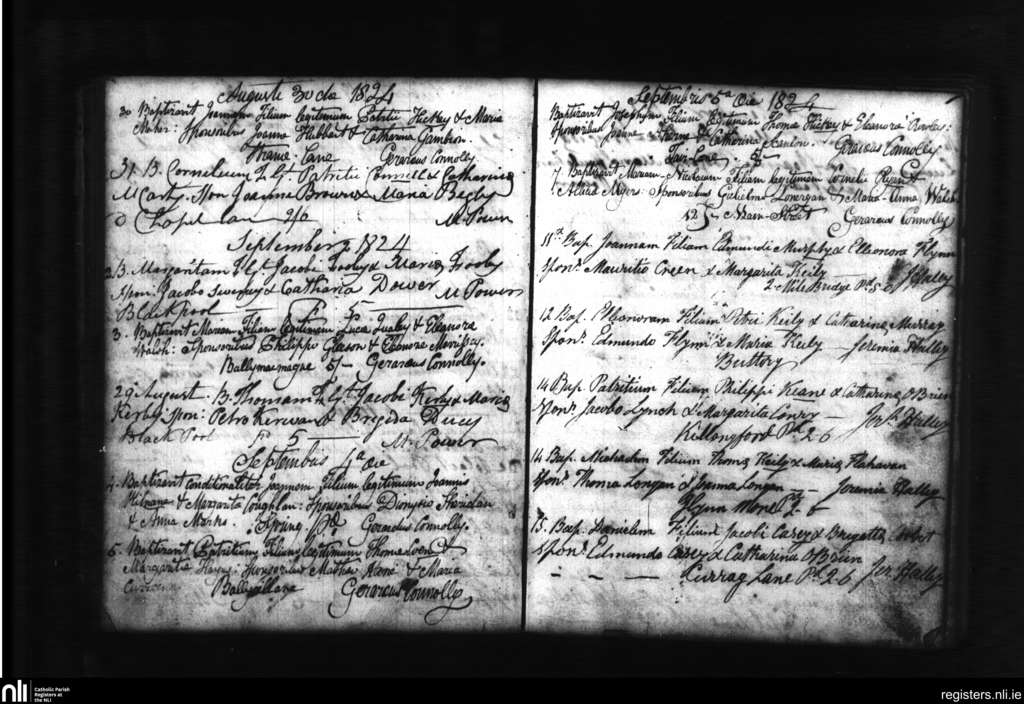 Augusti 30 die 1824
30 Baptizavi Joannem Filium legitimum Patritii Hickey & Maria
Maher: Sponsoribus Joanne Hubbart & Catharina
Strame Lane Gerardus Connolly
31 B. Cornelium F. Lgt. Patritii Connell & Catharina
McCarty. Spon Joanne Browne & Maria Begly
Chapel Lane 2/6 M. Power
September 2 1824
2 B. Margaritam F. Lgt. Jacobi Tooby & Maria Tooby
Spon: Jacobo Sweeney & Catharina Dower M Power
Blackpool 5
3. Baptizavi Filium legitimum Luca & Eleanora
Walsh: Sponsoribus Philippo Gleason & Elenora Morrissy.
Ballymacmague 5/- Gerardus Connolly.
29 August. B. Thomam F Lgt. Jacobi Kerby & Maria
Kerby Spon: Petro Kerwan & Brigida Ducy
Black Pool 5 M. Power
Septembris 4a die
4. Baptizavi Conditionaliter Joannem Filium legitimum Joannis
& Margarita Coughlan: Sponsoribus Dionysio Sheridan
& Anna Marks. Spring Gerardus Connolly.
5. Baptizavi Patritium Filium legitimum Thoma &
Margarita: Sponsoribus Mathew & Maria
Gerardus Connolly
Septembris 5a die 1824
Baptizavi Josephum Filium legitimum Thoma Hickey & Eleanora Rowley:
Sponsoribus Joanne & Catherina Scanlon. Gerardus Connolly
Lane.
7 Baptizavi Mariam Filium legitimum Cornelii Ryan &
Myers: Sponsoribus Gulielmo Lonergan & Maria-Anna Walsh
Main-Street Gerardus Connolly
11th Bap. Joannam Filiam Edmundi Murphy & Elleonora Flynn
Spon. Mauritio Creen & Margarita Keily
2 Mile Bridge Pd. 5 J Halley
12 Bap. Elleonoram Filiam Petri Keily & Catharina Murray
Spon. Edmundo Flynn & Maria Keily Jeremia Halley
Buttery
14 Bap. Patritium Filium Philippi Keane & Catharina O Brien
Spon. Jacobo Lynch & Margarita Jer. Halley
Killongford Pd. 2 6
14 Bap. Michaelem Filium Thoma Keily & Maria Flahavan
Spon. Thoma Longan & Joanna Longan Jeremia Halley
Glynn More Pd 2 6
15. Bap. Danielem Filium Jacobi Carey & Brigetta
Spon. Edmundo Carey & Catharina O Brien
Currag Lane Pd. 2 6 Jer. Halley
nli
Catholic Parish
Registers at
the NLI
registers.nli.ie